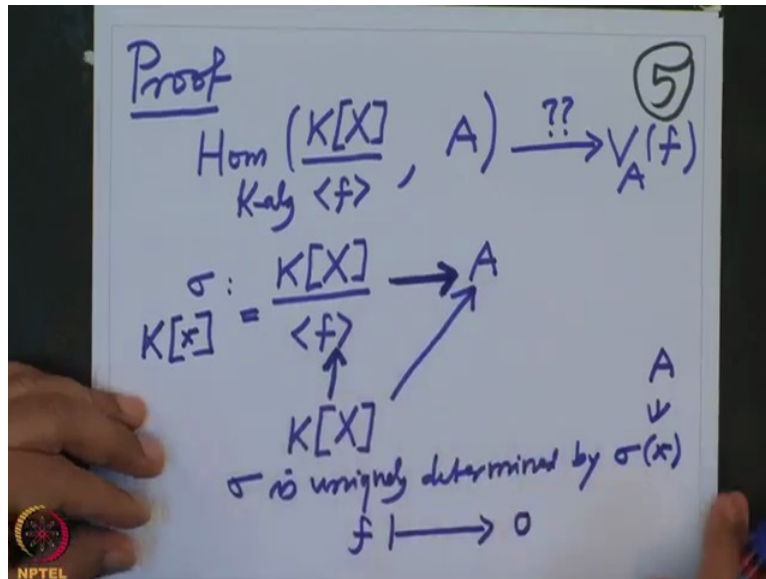 Proof
5
Hom K-alg ( K[X] / <f> , A ) ??⟶ V_A(f)
σ : K[x] = K[X] / <f> ⟶ A
K[X]
A
∪
σ is uniquely determined by σ(x)
f ⟼ 0
NPTEL